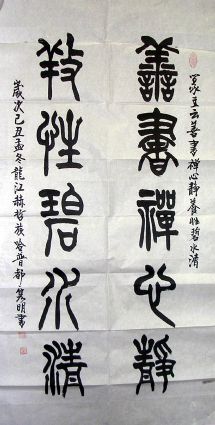 冢主云善書禪心靜養性碧水清
善書禪心靜
養性碧水清
歲次己丑孟冬龍江赫哲族哈普都·隽明書